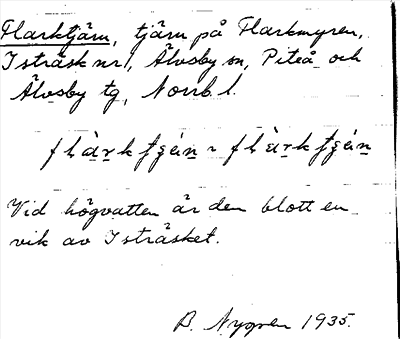 Flarktjärn, tjärn på Flarkmyren,
Isträsk nr 1, Älvsby sn, Piteå och
Älvsby tg, Norrb l.
Vid högvatten är den blott en
vik av Isträsket.
B. Nygren 1935.